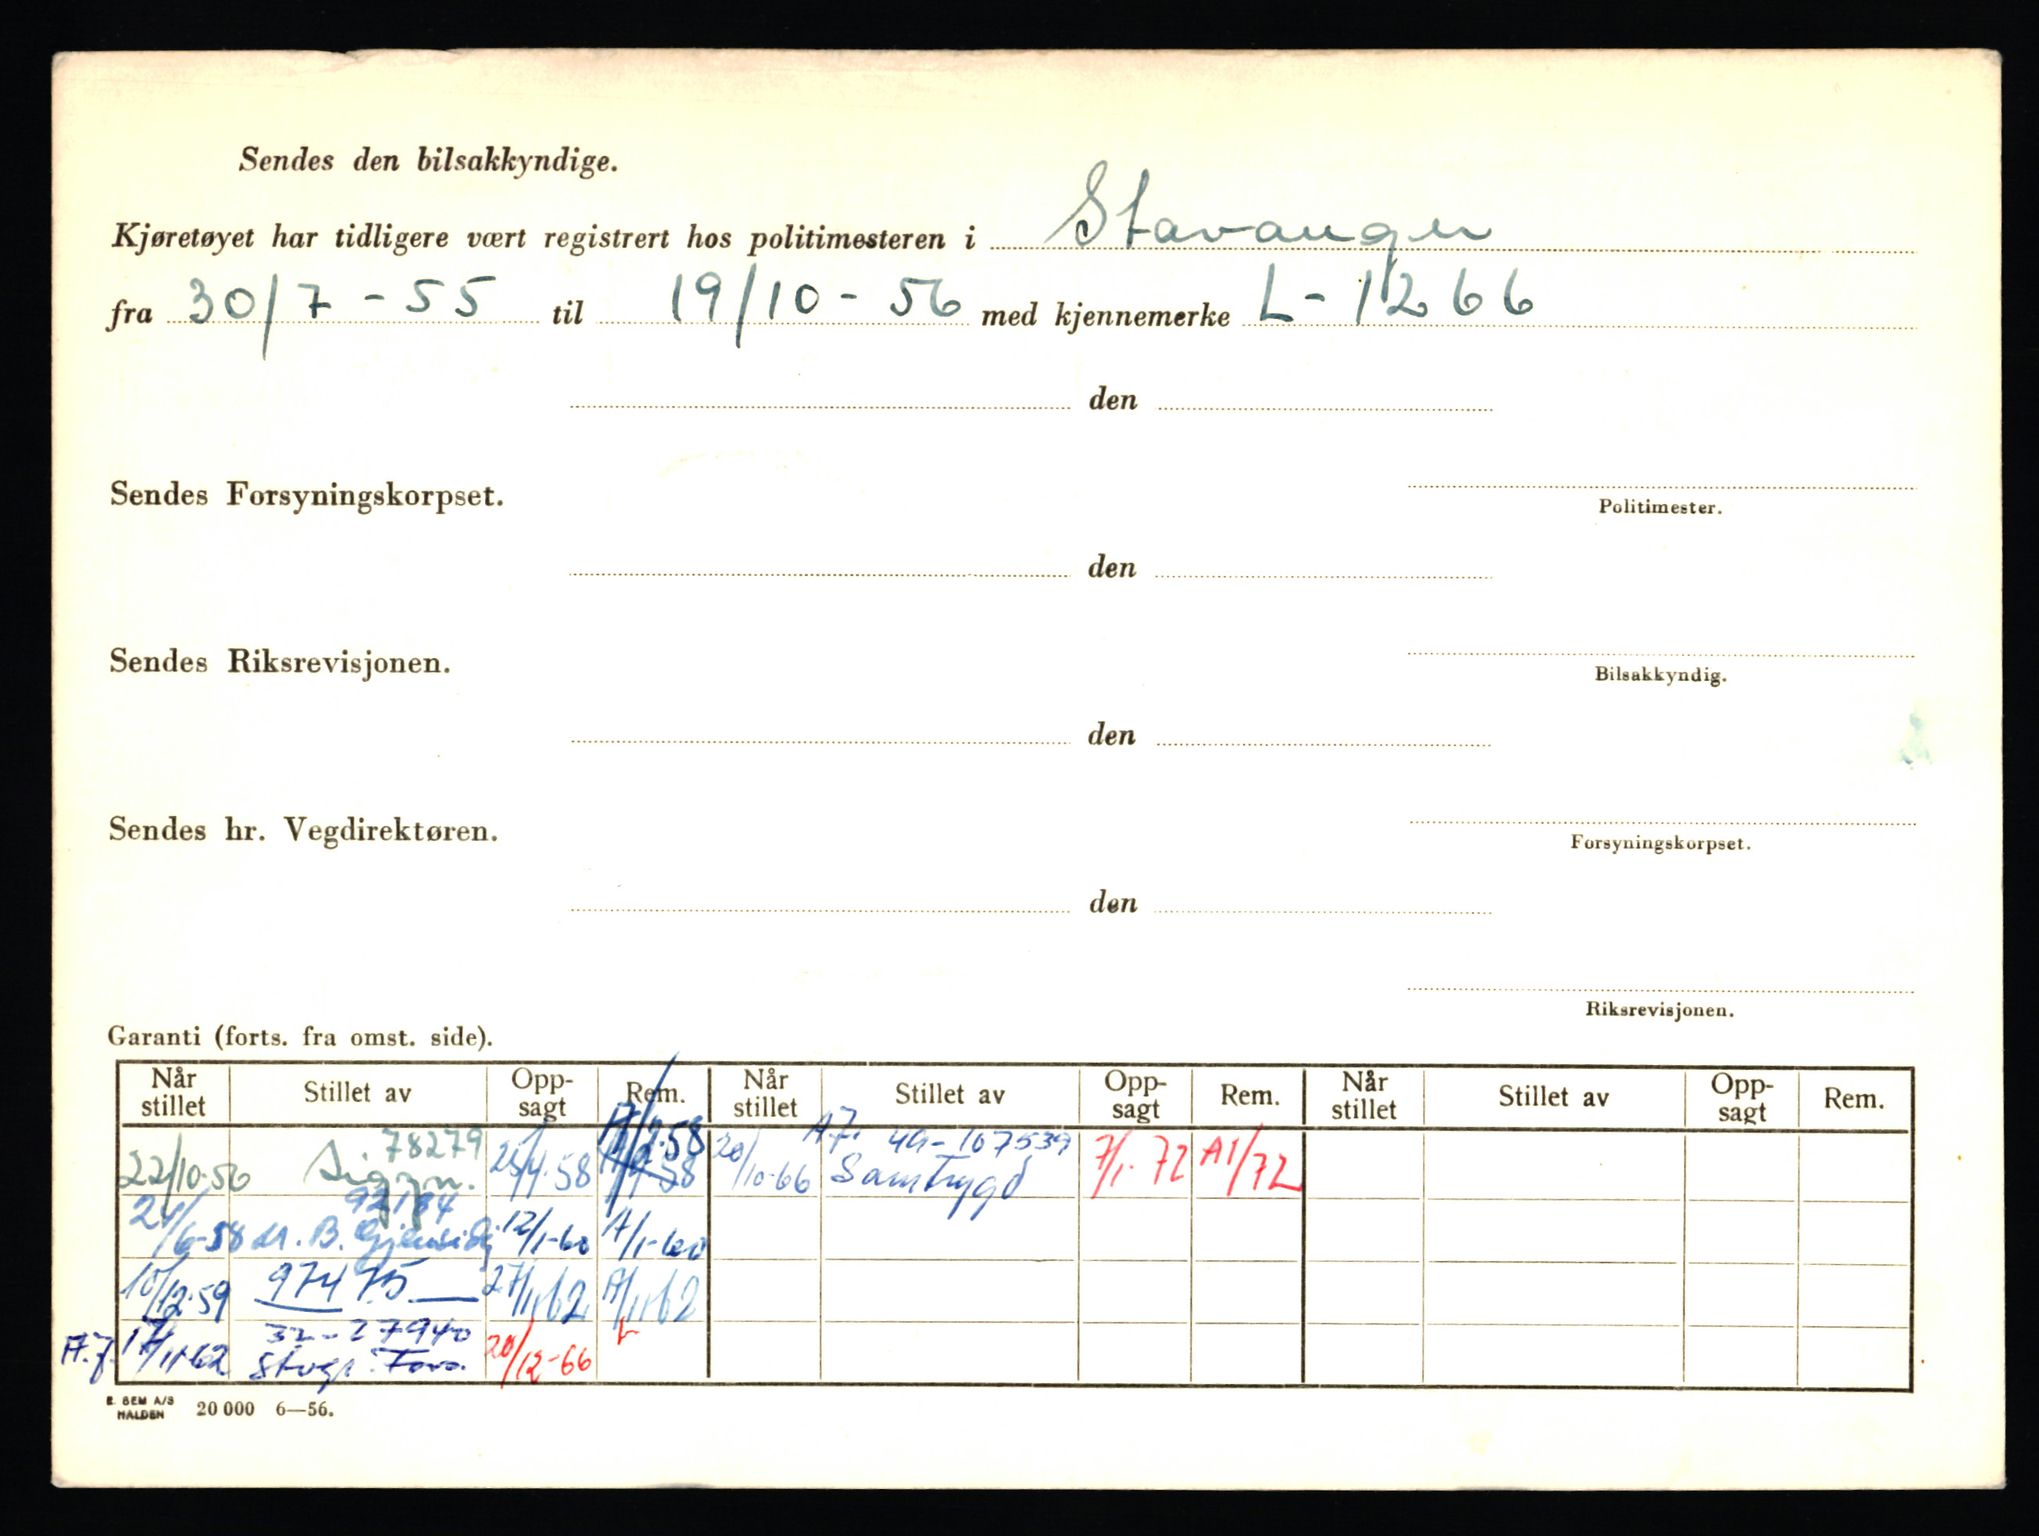 Sendes den bilsakkyndige.
Kjøretøyet har tidligere vært registrert hos politimesteren i Stavanger
fra 30/7 - 55 til 19/10 - 56 med kjennemerke L - 1266
den
Sendes Forsyningskorpset.
Politimester.
den
Sendes Riksrevisjonen.
Bilsakkyndig.
den
Sendes hr. Vegdirektøren.
Forsyningskorpset.
den
Riksrevisjonen.
Garanti (forts. fra omst. side).
Når stillet Stillet av Opp-sagt Rem. Når stillet Stillet av Opp-sagt Rem. Når stillet Stillet av Opp-sagt Rem.
78279 A.F. 49-107539
22/10-56 25/4-58 20/10-66 Samtrygd 7/1-72 A1/72
92184
24/6-58 B. Gjensidig 12/1-60 A/1-60
10/12-59 97475 27/11-62 A/11-62
32-27940
A.F. 17/11-62 Stvgr. Forv. 20/12-66
E. SEM A/S
HALDEN 20 000 6—56.